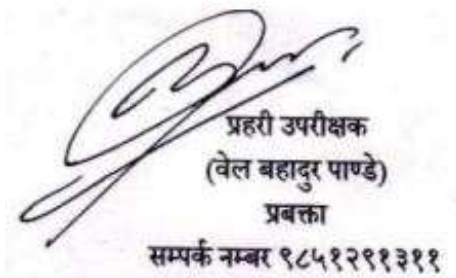 प्रहरी उपरीक्षक
(वेल बहादुर पाण्डे)
प्रबक्ता
सम्पर्क नम्बर ९८५१२९१३११